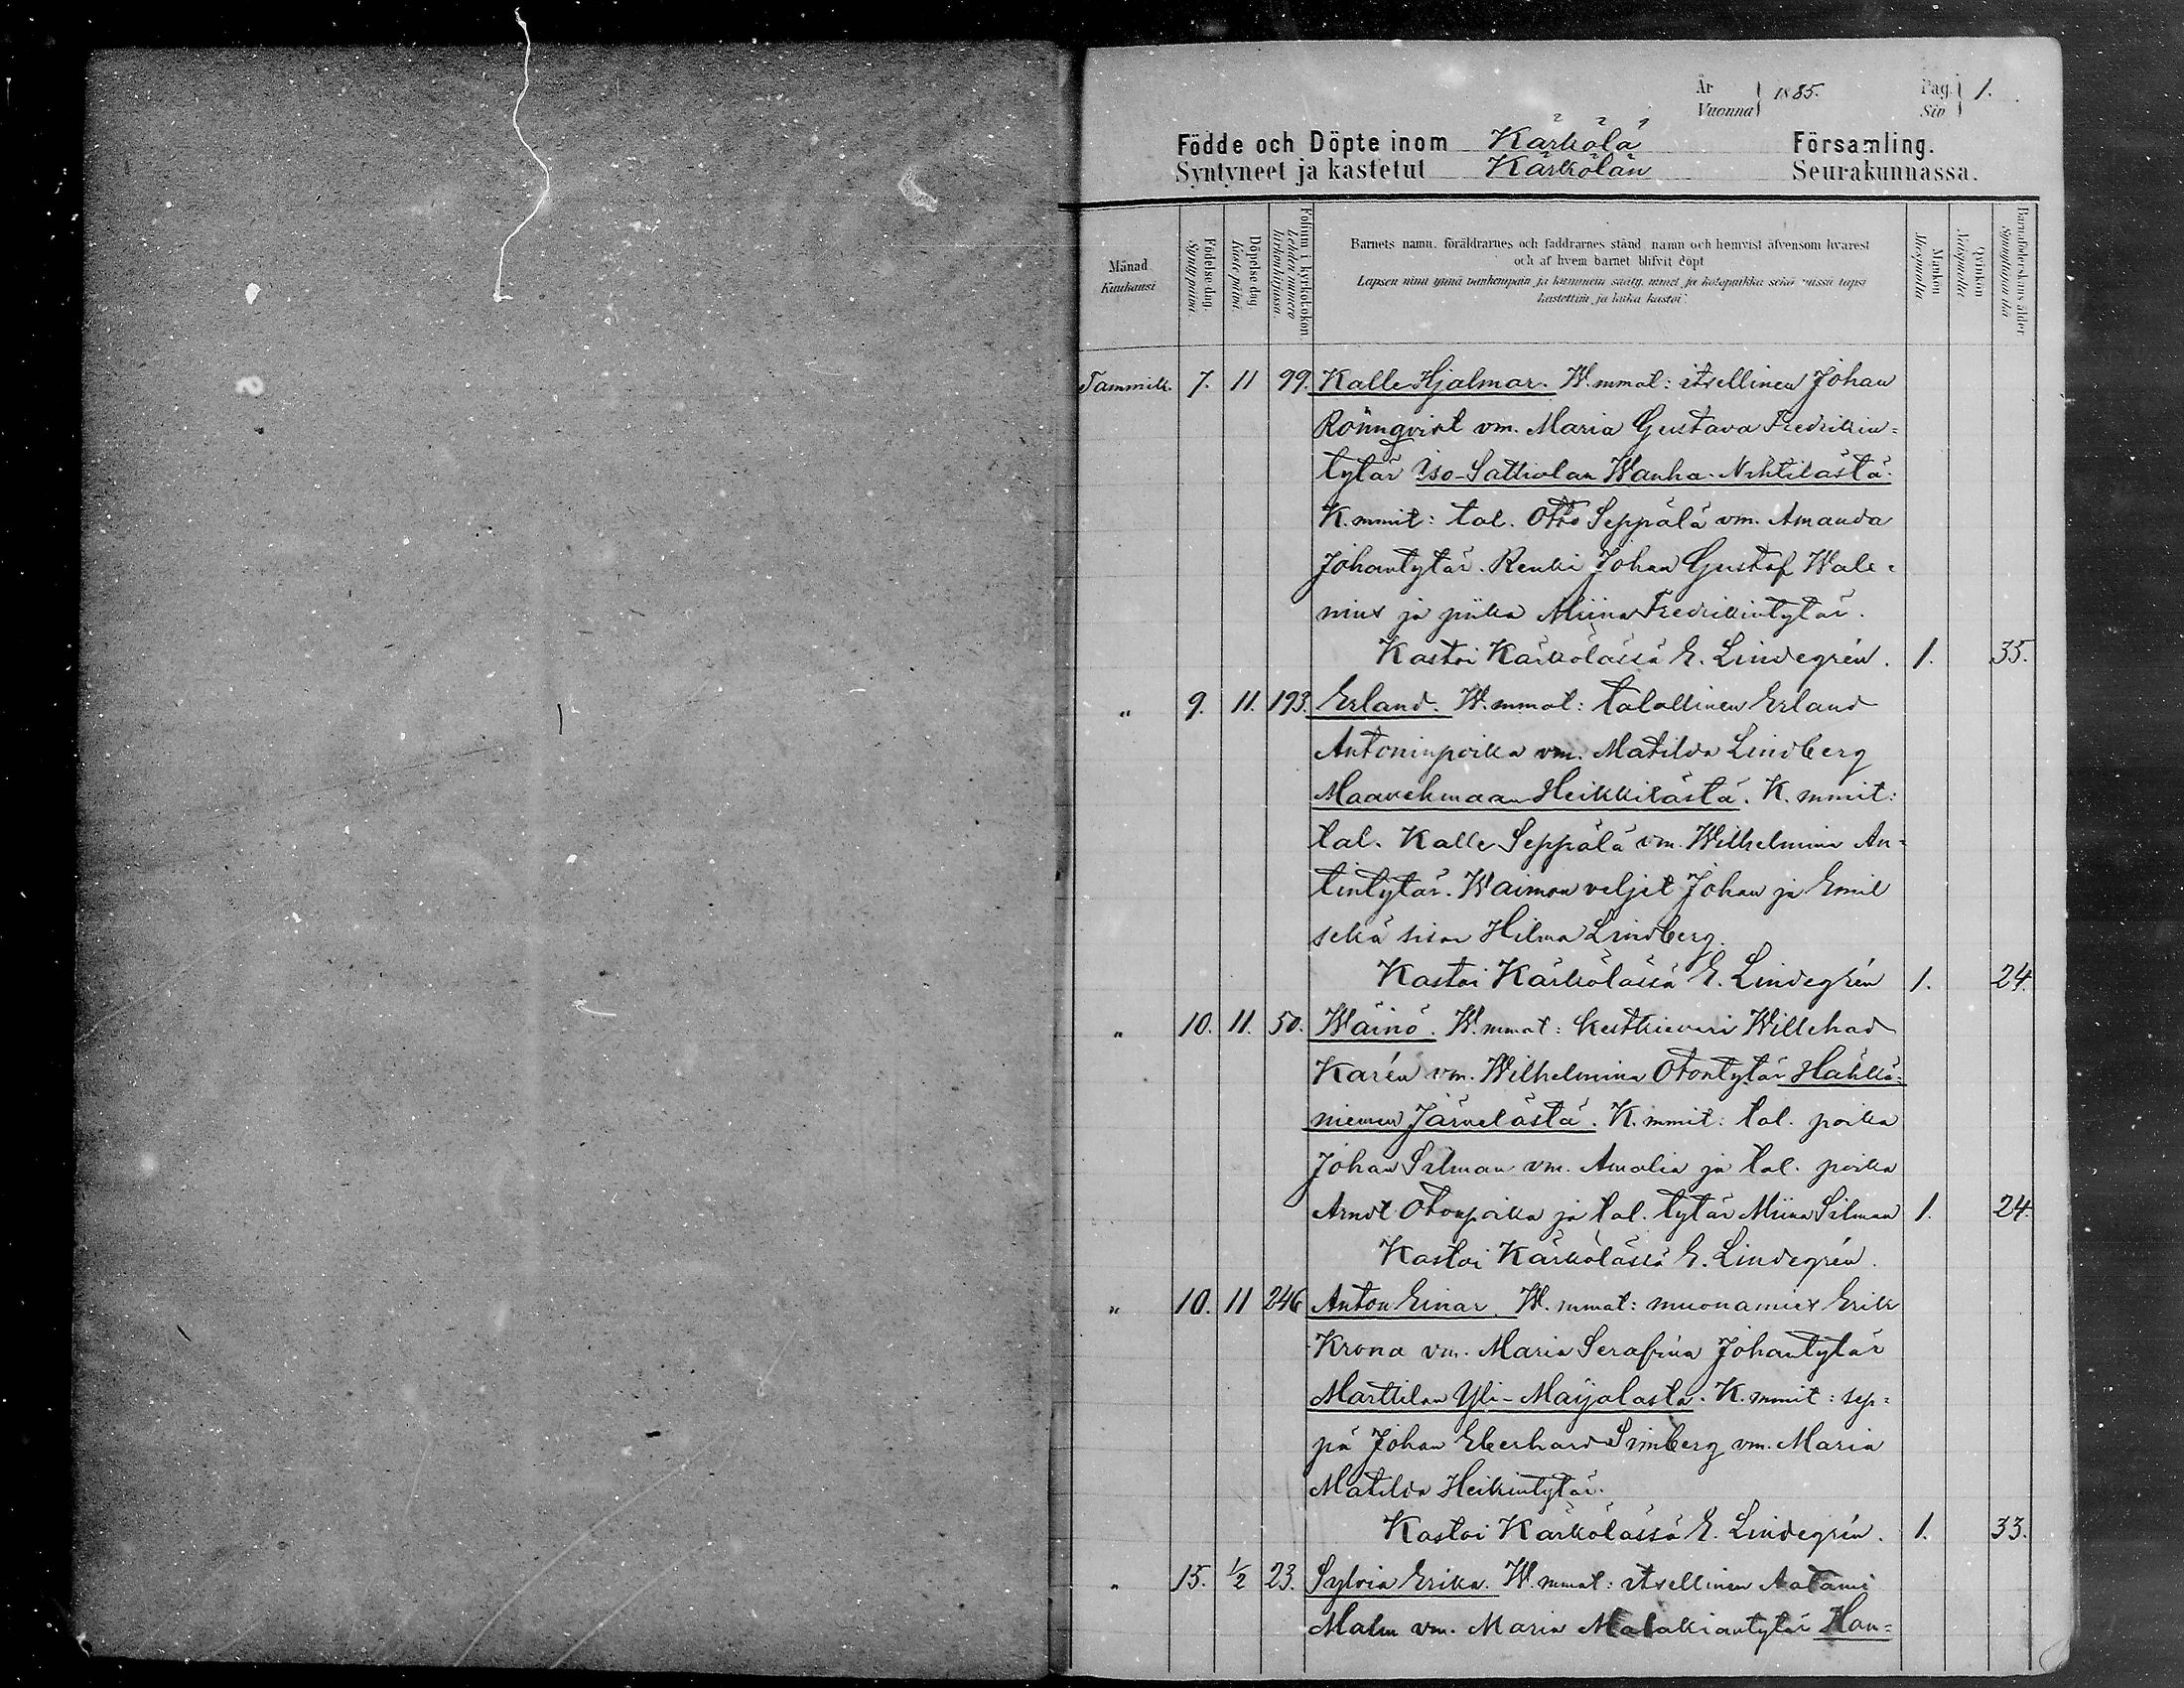 År
Vuonna } 1885.
Pag.
Siv } 1.
Födde och Döpte inom Kärkölä Församling.
Syntyneet ja kastetut Kärkölän Seurakunnassa.
Månad
Kuukausi
Födelse-dag.
Syntypäivä
Döpelse-dag.
Kaste-päivä.
Folium i kyrkoboken.
Lehden numero
kirkonkirjassa.
Barnets namn, föräldrarnes och faddrarnes stånd, namn och hemvist äfvensom hvarest
och af hvem barnet blifvit döpt
Lapsen nimi ynnä vanhempain ja kummein sääty, nimet ja kotopaikka sekä missä lapsi
kastettiin ja kuka kastoi.
Mankön
Miespuolia
Qvinkön
Naispuolia
Barnaföderskans ålder
Synnyttäjän ikä
Tammik. 7. 11 99. Kalle Hjalmar. W.mmat: itsellinen Johan
Rönnqvist vm. Maria Gustava Fredrikin-
tytär Iso-Sattialan Wanha-Nihtilästä.
K.mmit: tal. Otto Seppälä vm. Amanda
Johantytär. Renki Johan Gustaf Wale-
nius ja piika Miina Fredrikintytär.
Kastoi Kärkölässä E. Lindegrén. 1. 35.
" 9. 11. 193. Erland. W.mmat: talollinen Erland
Antoninpoika vm. Matilda Lindberg
Maavehmaan Heikkilästä. K.mmit:
tal. Kalle Seppälä vm. Wilhelmina An-
tintytär. Waimon veljet Johan ja Emil
sekä sisar Hilma Lindberg.
Kastoi Kärkölässä E. Lindegrén 1. 24.
" 10. 11. 50. Wäinö. W.mmat: kestkievari Willehad
Karén vm. Wilhelmina Otontytär Hähkä-
niemen Järvelästä. K.mmit: tal. poika
Johan Silman vm. Amalia ja tal. poika
Arndt Otonpoika ja tal. tytär Miina Silman 1. 24.
Kastoi Kärkölässä E. Lindegrén.
" 10. 11 246 Anton Einar. W.mmat: muonamies Erik
Krona vm. Maria Serafina Johantytär
Marttilan Yli-Maijalasta. K.mmit: sep-
pä Johan Eberhard Simberg vm. Maria
Matilda Heikintytär.
Kastoi Kärkölässä E. Lindegrén. 1. 33.
" 15. 1/2 23. Sylvia Erika. W.mmat: itsellinen Aatami
Malm vm. Maria Malakiantytär Han-